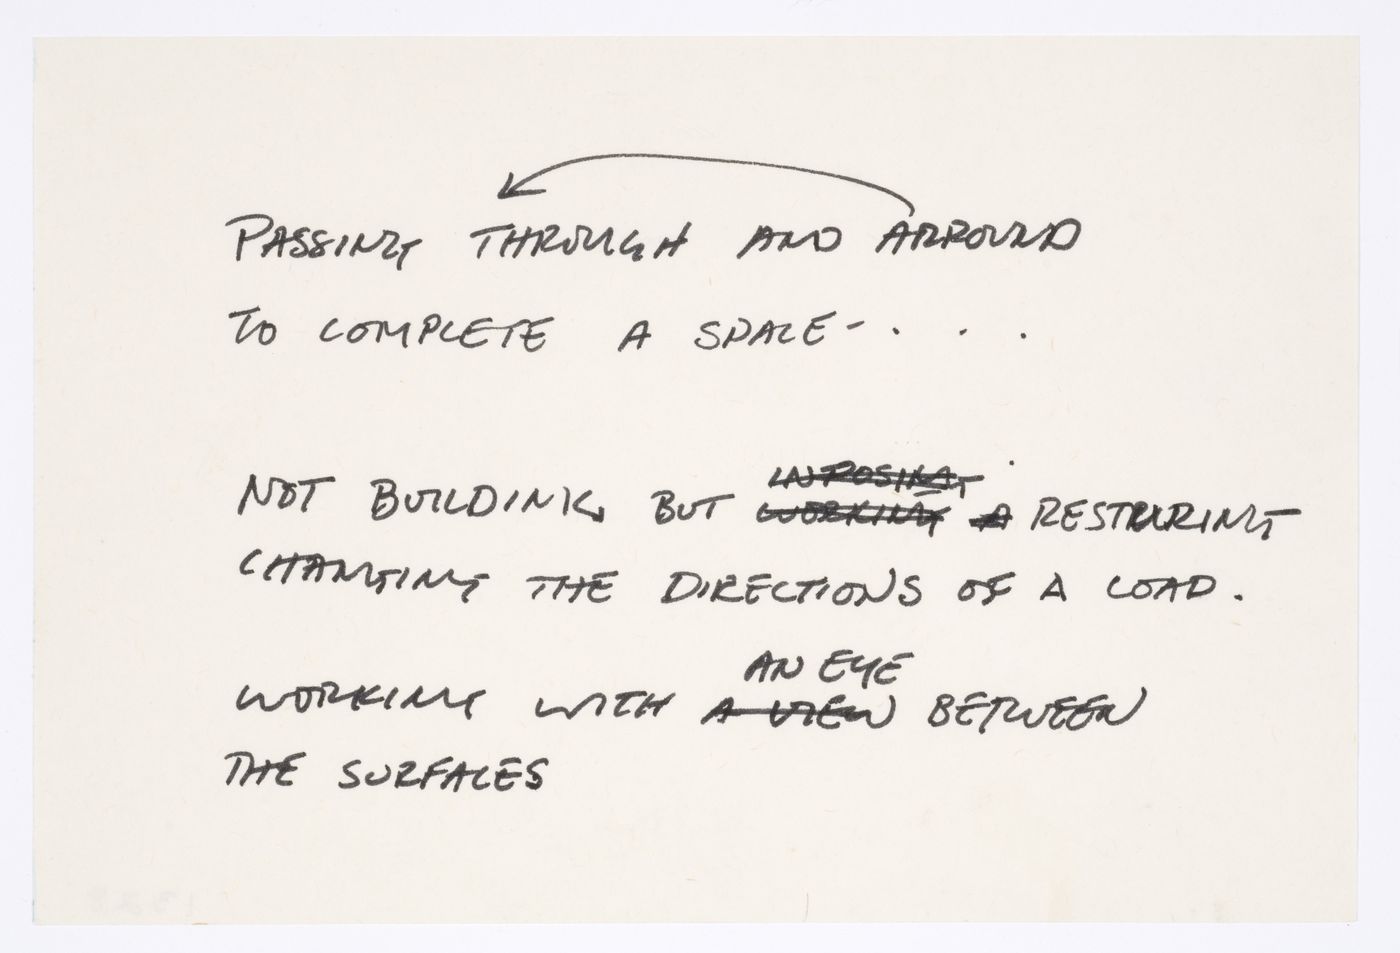 PASSING THROUGH AND ARROUND
TO COMPLETE A SPACE - . . .
NOT BUILDING, BUT WORKING A RESTRURING
CHANGING THE DIRECTIONS OF A LOAD.
AN EYE
WORKING WITH A VIEW BETWEEN
THE SURFACES